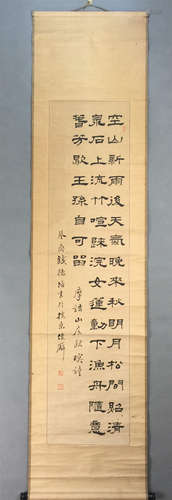 空山新雨後天氣晚來秋明月松間照清
泉石上流竹喧歸浣女蓮動下漁舟隨意
春芳歇王孫自可留
摩詰山居秋暝詩